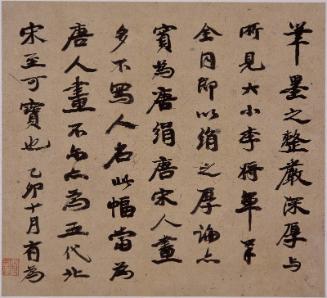 筆墨之整嚴深厚与
所見大小李將軍
全同即以絹之厚論亦
實為唐絹唐宋人畫
多不寫人名此幅當為
唐人畫不亦為五代北
宋至可寶也 乙卯十月有為